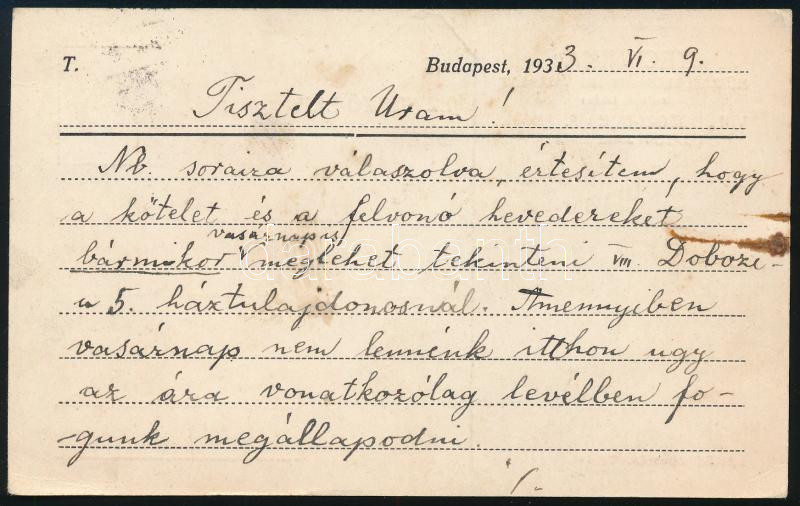 T. Budapest, 1933. VI. 9.
Tisztelt Uram!
Nb. soraira válaszolva, értesítem, hogy
a kötelet és a felvonó hevedereket
vasárnap is
bármikor meglehet tekinteni VIII Dobozi-
u 5. háztulajdonosnál. Amennyiben
vasárnap nem lennénk itthon ugy
az ára vonatkozólag levélben fo-
-gunk megállapodni.
/.
darabanth